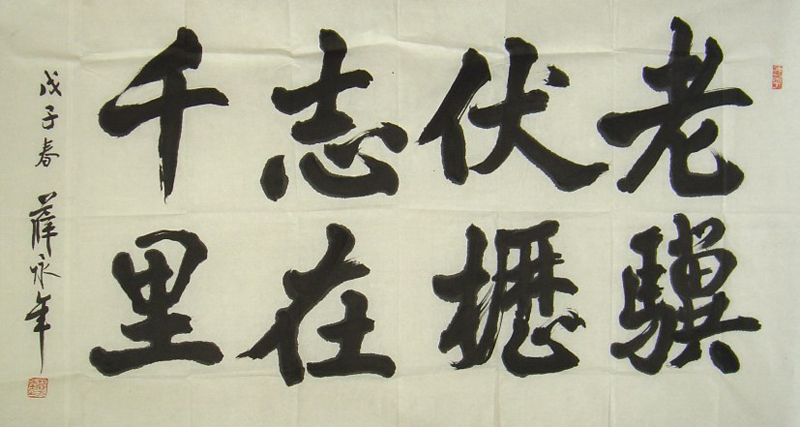 老骥
伏枥
志在
千里
戊子春 薛永年